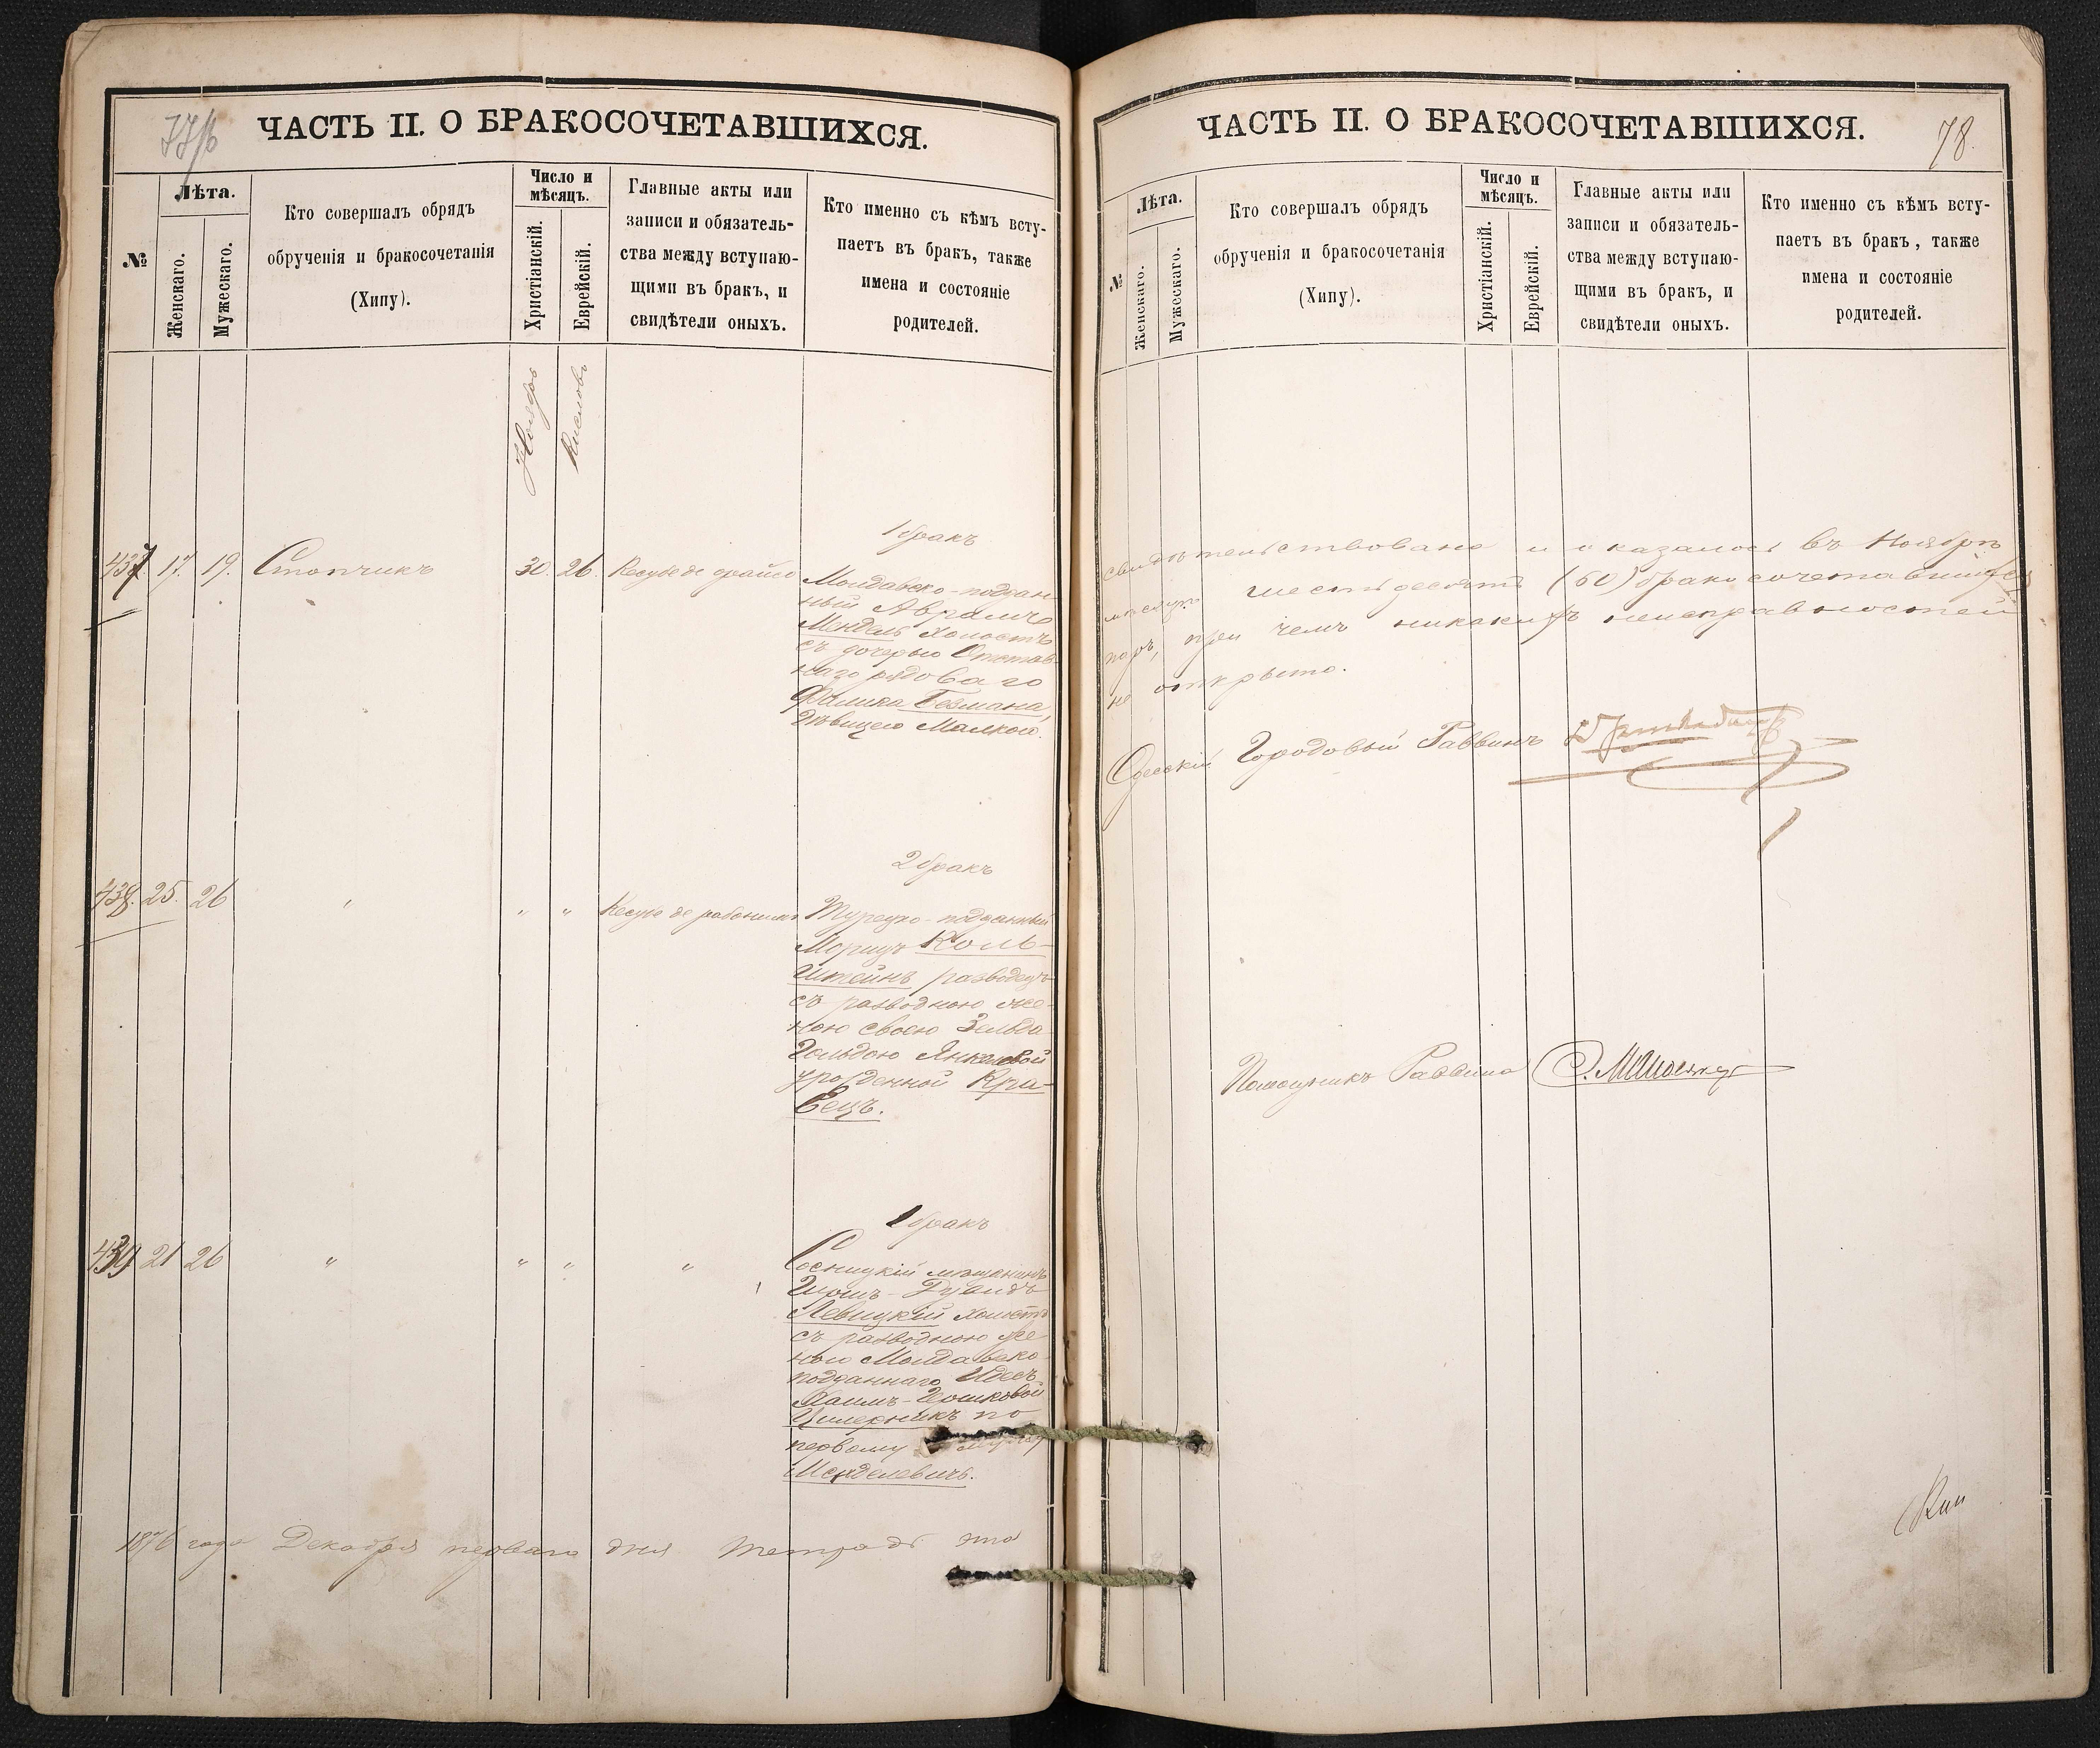 77/б
ЧАСТЬ II. О БРАКОСОЧЕТАВШИХСЯ.
№
Лѣта.
Женскаго.
Мужескаго.
Кто совершалъ обрядъ
обрученія и бракосочетанія
(Хипу).
Число и
мѣсяцъ.
Христіанскій.
Еврейскій.
Главные акты или
записи и обязатель-
ства между вступаю-
щими въ бракъ, и
свидѣтели оныхъ.
Кто именно съ кѣмъ всту-
паетъ въ бракъ, также
имена и состояніе
родителей.
Ноябрь
Кислевъ
1 бракъ
437. 17. 19. Столчикъ 30. 26.
Молдавско-поддан-
ный Аврамъ
Мендель холостъ
съ дочерью Отстав-
наго рядоваго
Фалика Гезмана,
дѣвицею Малкой.
2 бракъ
438. 25. 26 " " "
Турецко-подданный
Морицъ Коль-
штейнъ разводецъ
съ разводною же-
ною своею Зельда
Гольдою Янкелевой
урожденной Кри-
вецъ.
1 бракъ
439 21 26 " " " "
Сосницкій мѣщанинъ
Левицкій холостъ
съ разводною же-
ною Молдавско-
подданнаго Идесъ
Хаимъ-Іошковой
по
первому мужу
Менделевичъ.
1876 года Декабря перваго дня тетрадь эта
78.
ЧАСТЬ II. О БРАКОСОЧЕТАВШИХСЯ.
№
Лѣта.
Женскаго.
Мужескаго.
Кто совершалъ обрядъ
обрученія и бракосочетанія
(Хипу).
Число и
мѣсяцъ.
Христіанскій.
Еврейскій.
Главные акты или
записи и обязатель-
ства между вступаю-
щими въ бракъ, и
свидѣтели оныхъ.
Кто именно съ кѣмъ всту-
паетъ въ бракъ, также
имена и состояніе
родителей.
свидѣтельствована и оказалось въ Ноябрѣ
мѣсяцѣ шестьдесятъ (60) бракосочетавшихся
паръ, при чемъ никакихъ неисправностей
не открыто.
Одесскій Городовый Раввинъ
Помощникъ Раввина